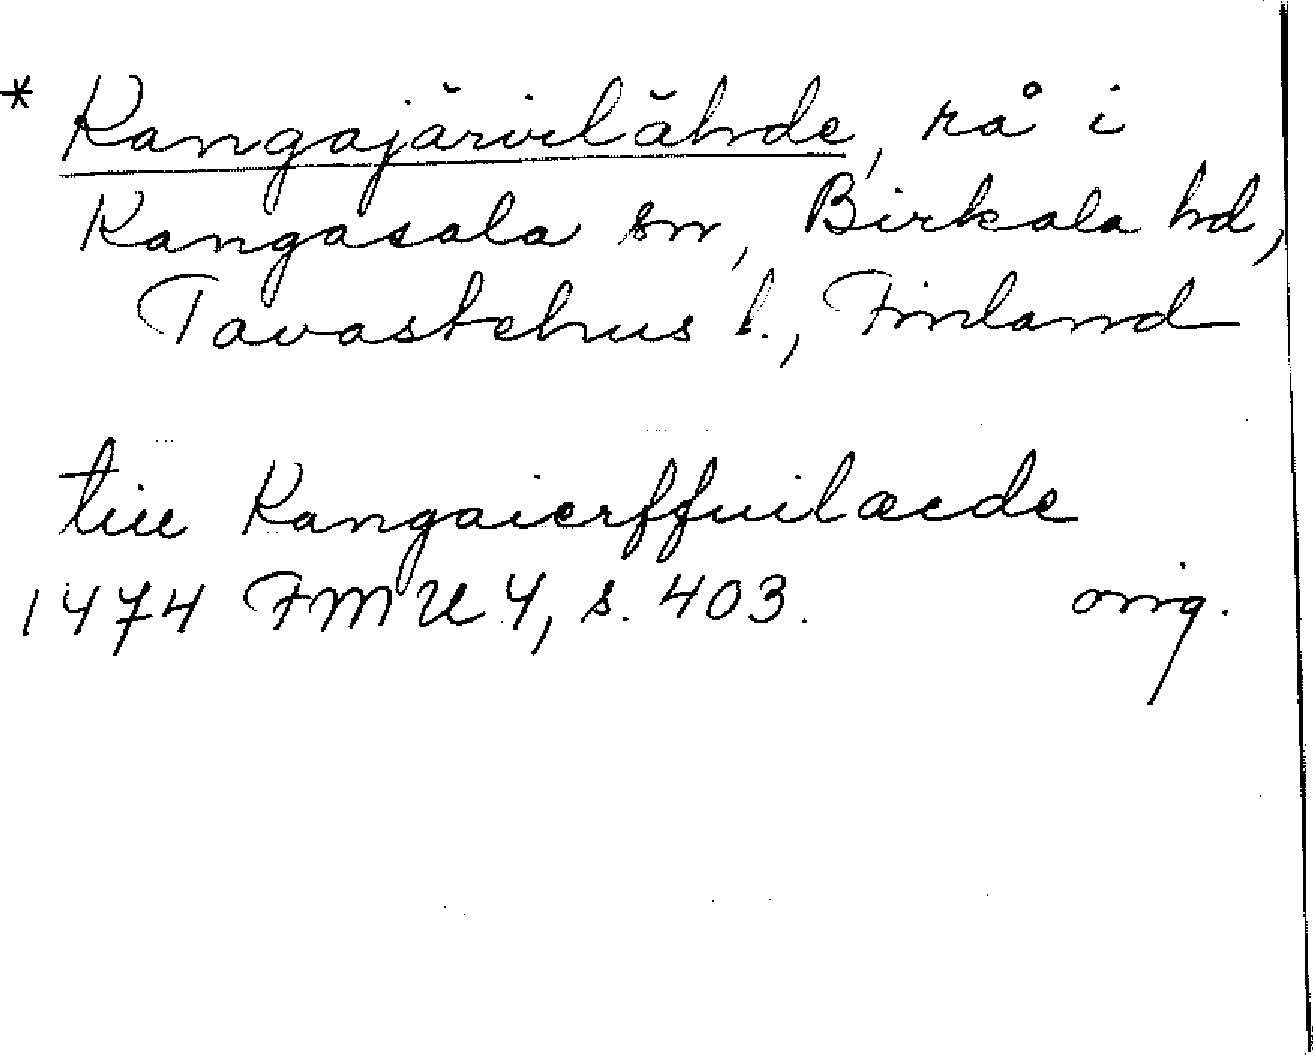 * Kangajärvilähde, rå i
Kangasala sn, Birkala hd,
Tavastehus l., Finland
till Kangaierffuilæde
1474 FMU 4, s. 403. orig.